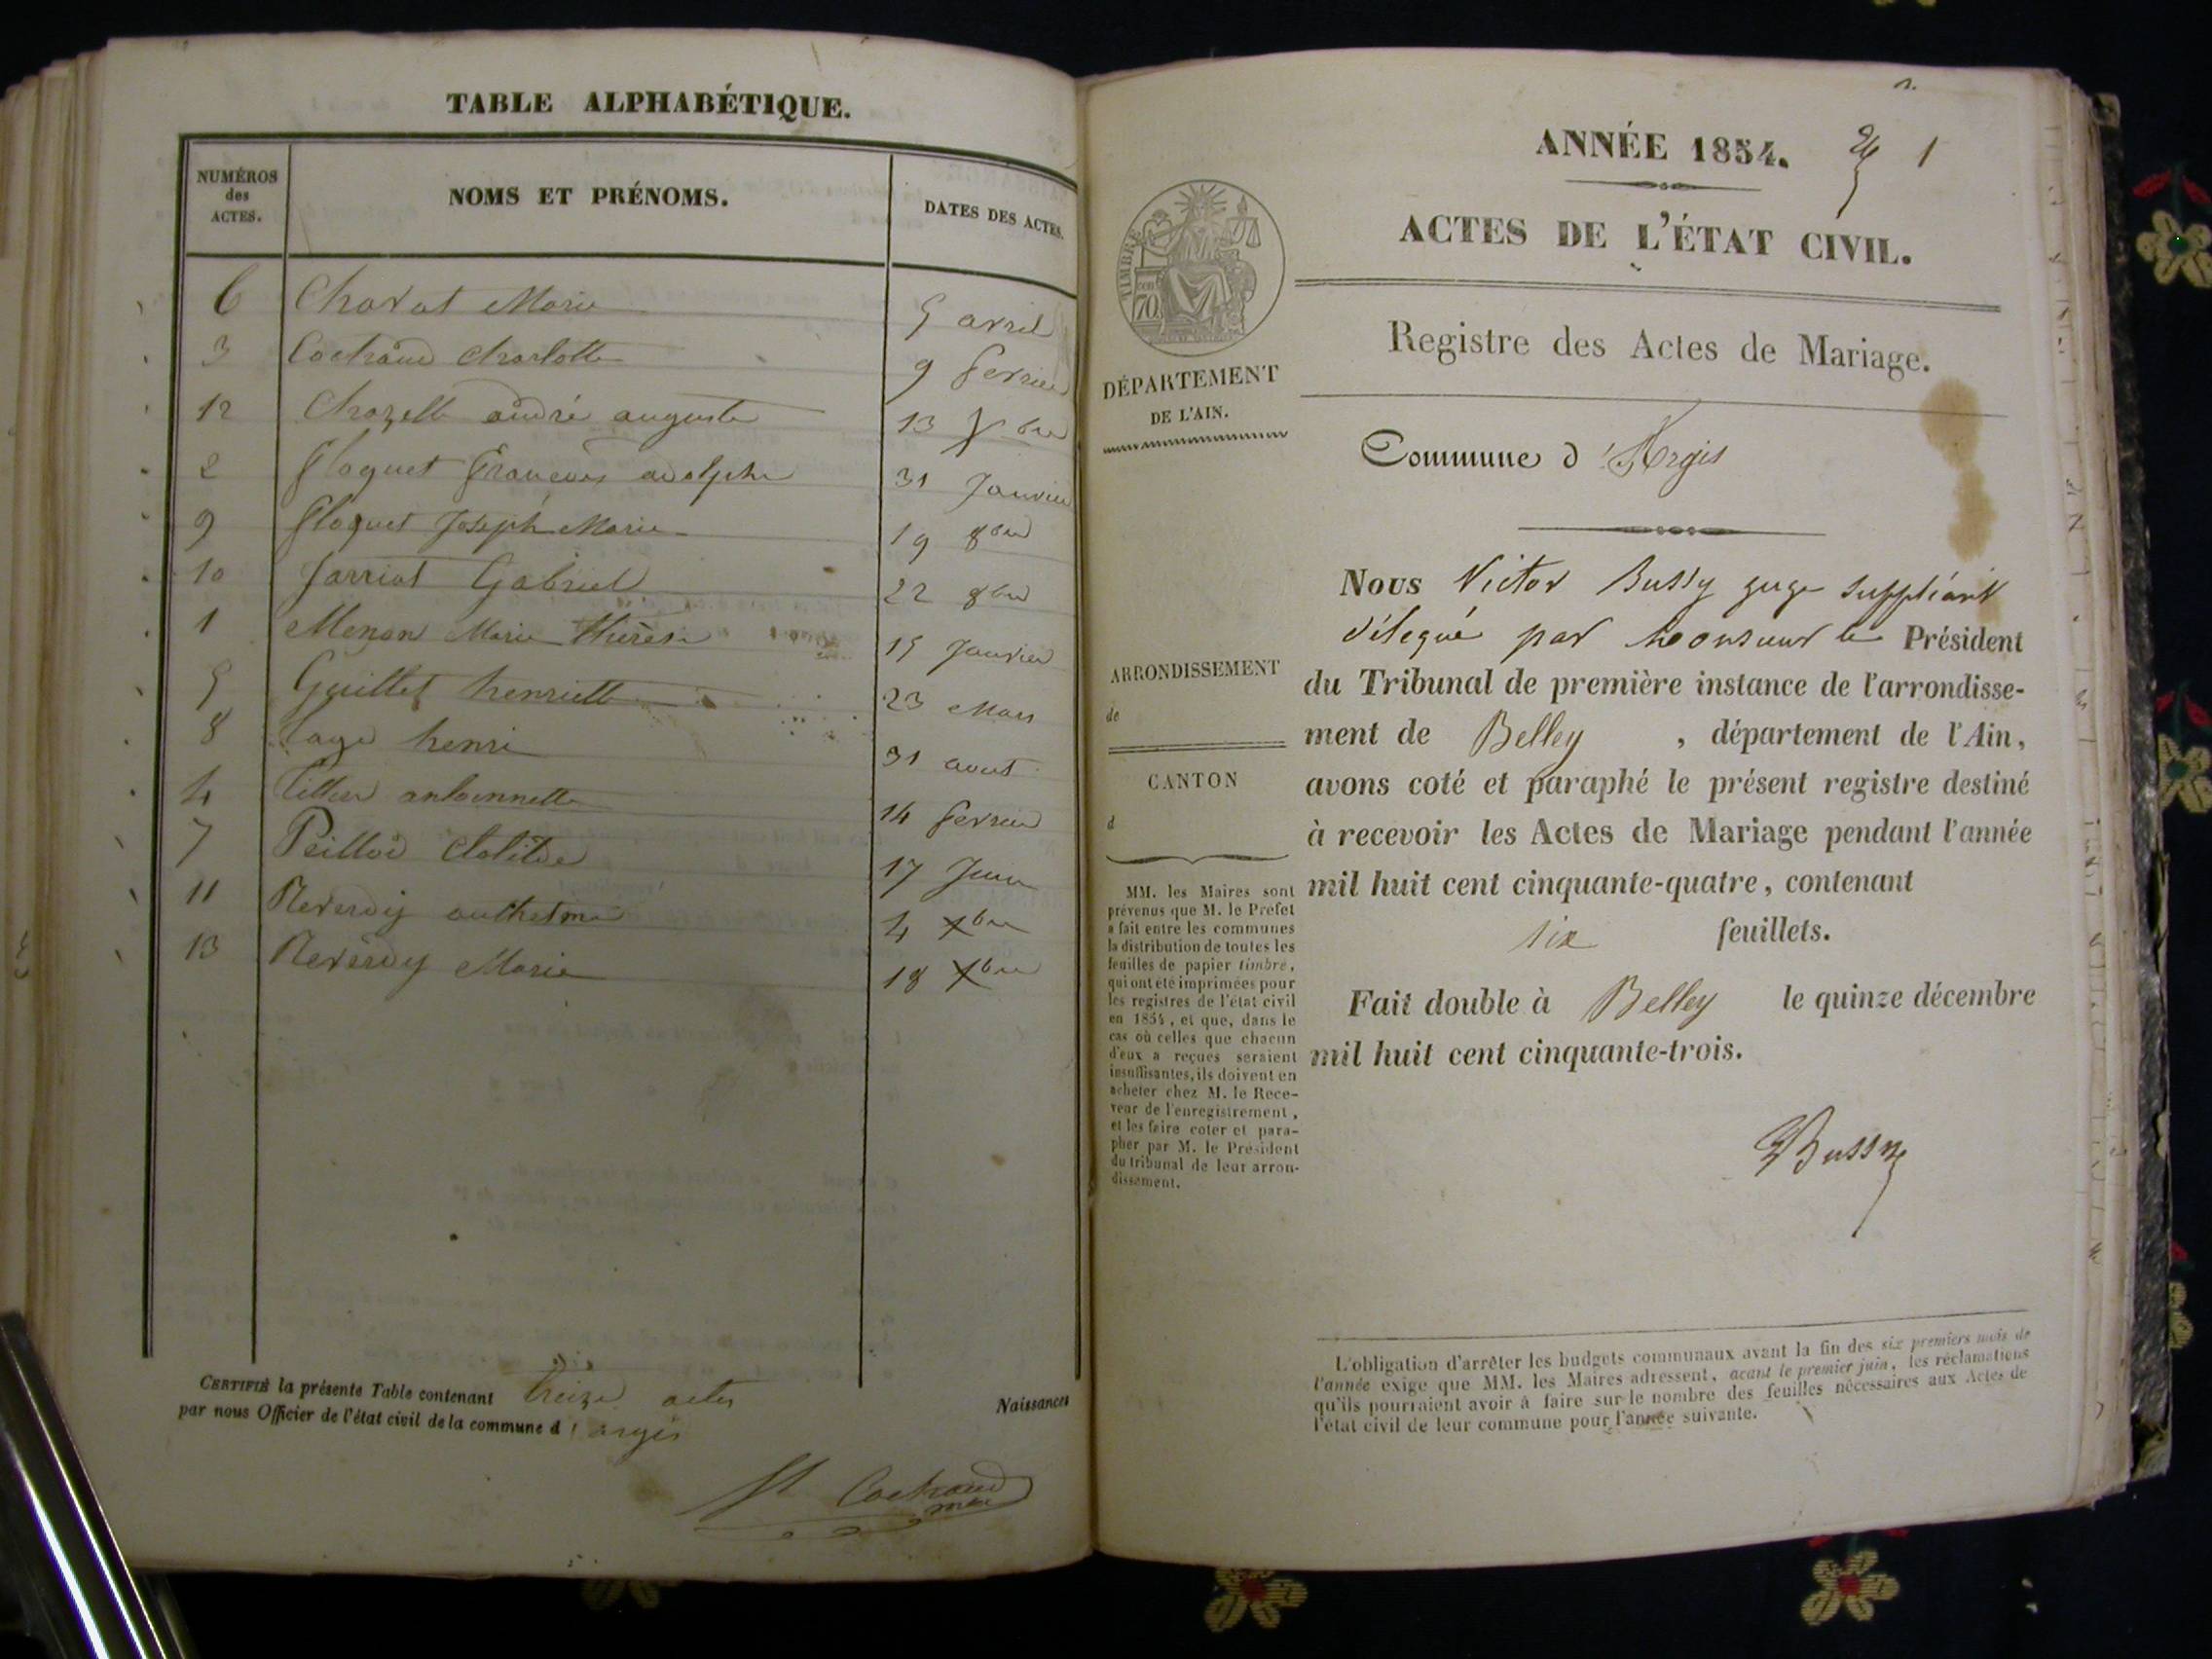 TABLE ALPHABÉTIQUE.
NUMÉROS des ACTES.
NOMS ET PRÉNOMS.
DATES DES ACTES.
6 Charat Marie 5 avril
3 Cochaud Charlotte 9 fevrier
12 andré auguste 13 Xbre
2 floquet françois adolphe 31 Janvier
9 floquet Joseph Marie 19 8bre
10 Jarriat Gabriel 22 8bre
1 Marie thérèse 15 Janvier
5 Guillet henriette 23 Mars
8 henri 31 aout
4 antoinnette 14 fevrier
7 Peillod Clotilde 17 Juin
11 Reverdy anthelme 4 Xbre
13 Reverdy Marie 18 Xbre
CERTIFIÉ la présente Table contenant treize actes
par nous Officier de l'état civil de la commune d'argis
Naissances
Cochaud
maire
ANNÉE 1854. 1
ACTES DE L'ÉTAT CIVIL.
TIMBRE
70
Registre des Actes de Mariage.
DÉPARTEMENT
DE L'AIN.
Commune d'Argis
Nous Victor Bussy juge suppléant
délégué par monsieur le Président
du Tribunal de première instance de l'arrondisse-
ment de Belley , département de l'Ain,
avons coté et paraphé le présent registre destiné
à recevoir les Actes de Mariage pendant l'année
mil huit cent cinquante-quatre, contenant
six feuillets.
Fait double à Belley le quinze décembre
mil huit cent cinquante-trois.
VBussy
ARRONDISSEMENT
de
CANTON
d
MM. les Maires sont
prévenus que M. le Préfet
a fait entre les communes
la distribution de toutes les
feuilles de papier timbré,
qui ont été imprimées pour
les registres de l'état civil
en 1854, et que, dans le
cas où celles que chacun
d'eux a reçues seraient
insuffisantes, ils doivent en
acheter chez M. le Rece-
veur de l'enregistrement,
et les faire coter et para-
pher par M. le Président
du tribunal de leur arron-
dissement.
L'obligation d'arrêter les budgets communaux avant la fin des six premiers mois de
l'année exige que MM. les Maires adressent, avant le premier juin, les réclamations
qu'ils pourraient avoir à faire sur le nombre des feuilles nécessaires aux Actes de
l'état civil de leur commune pour l'année suivante.